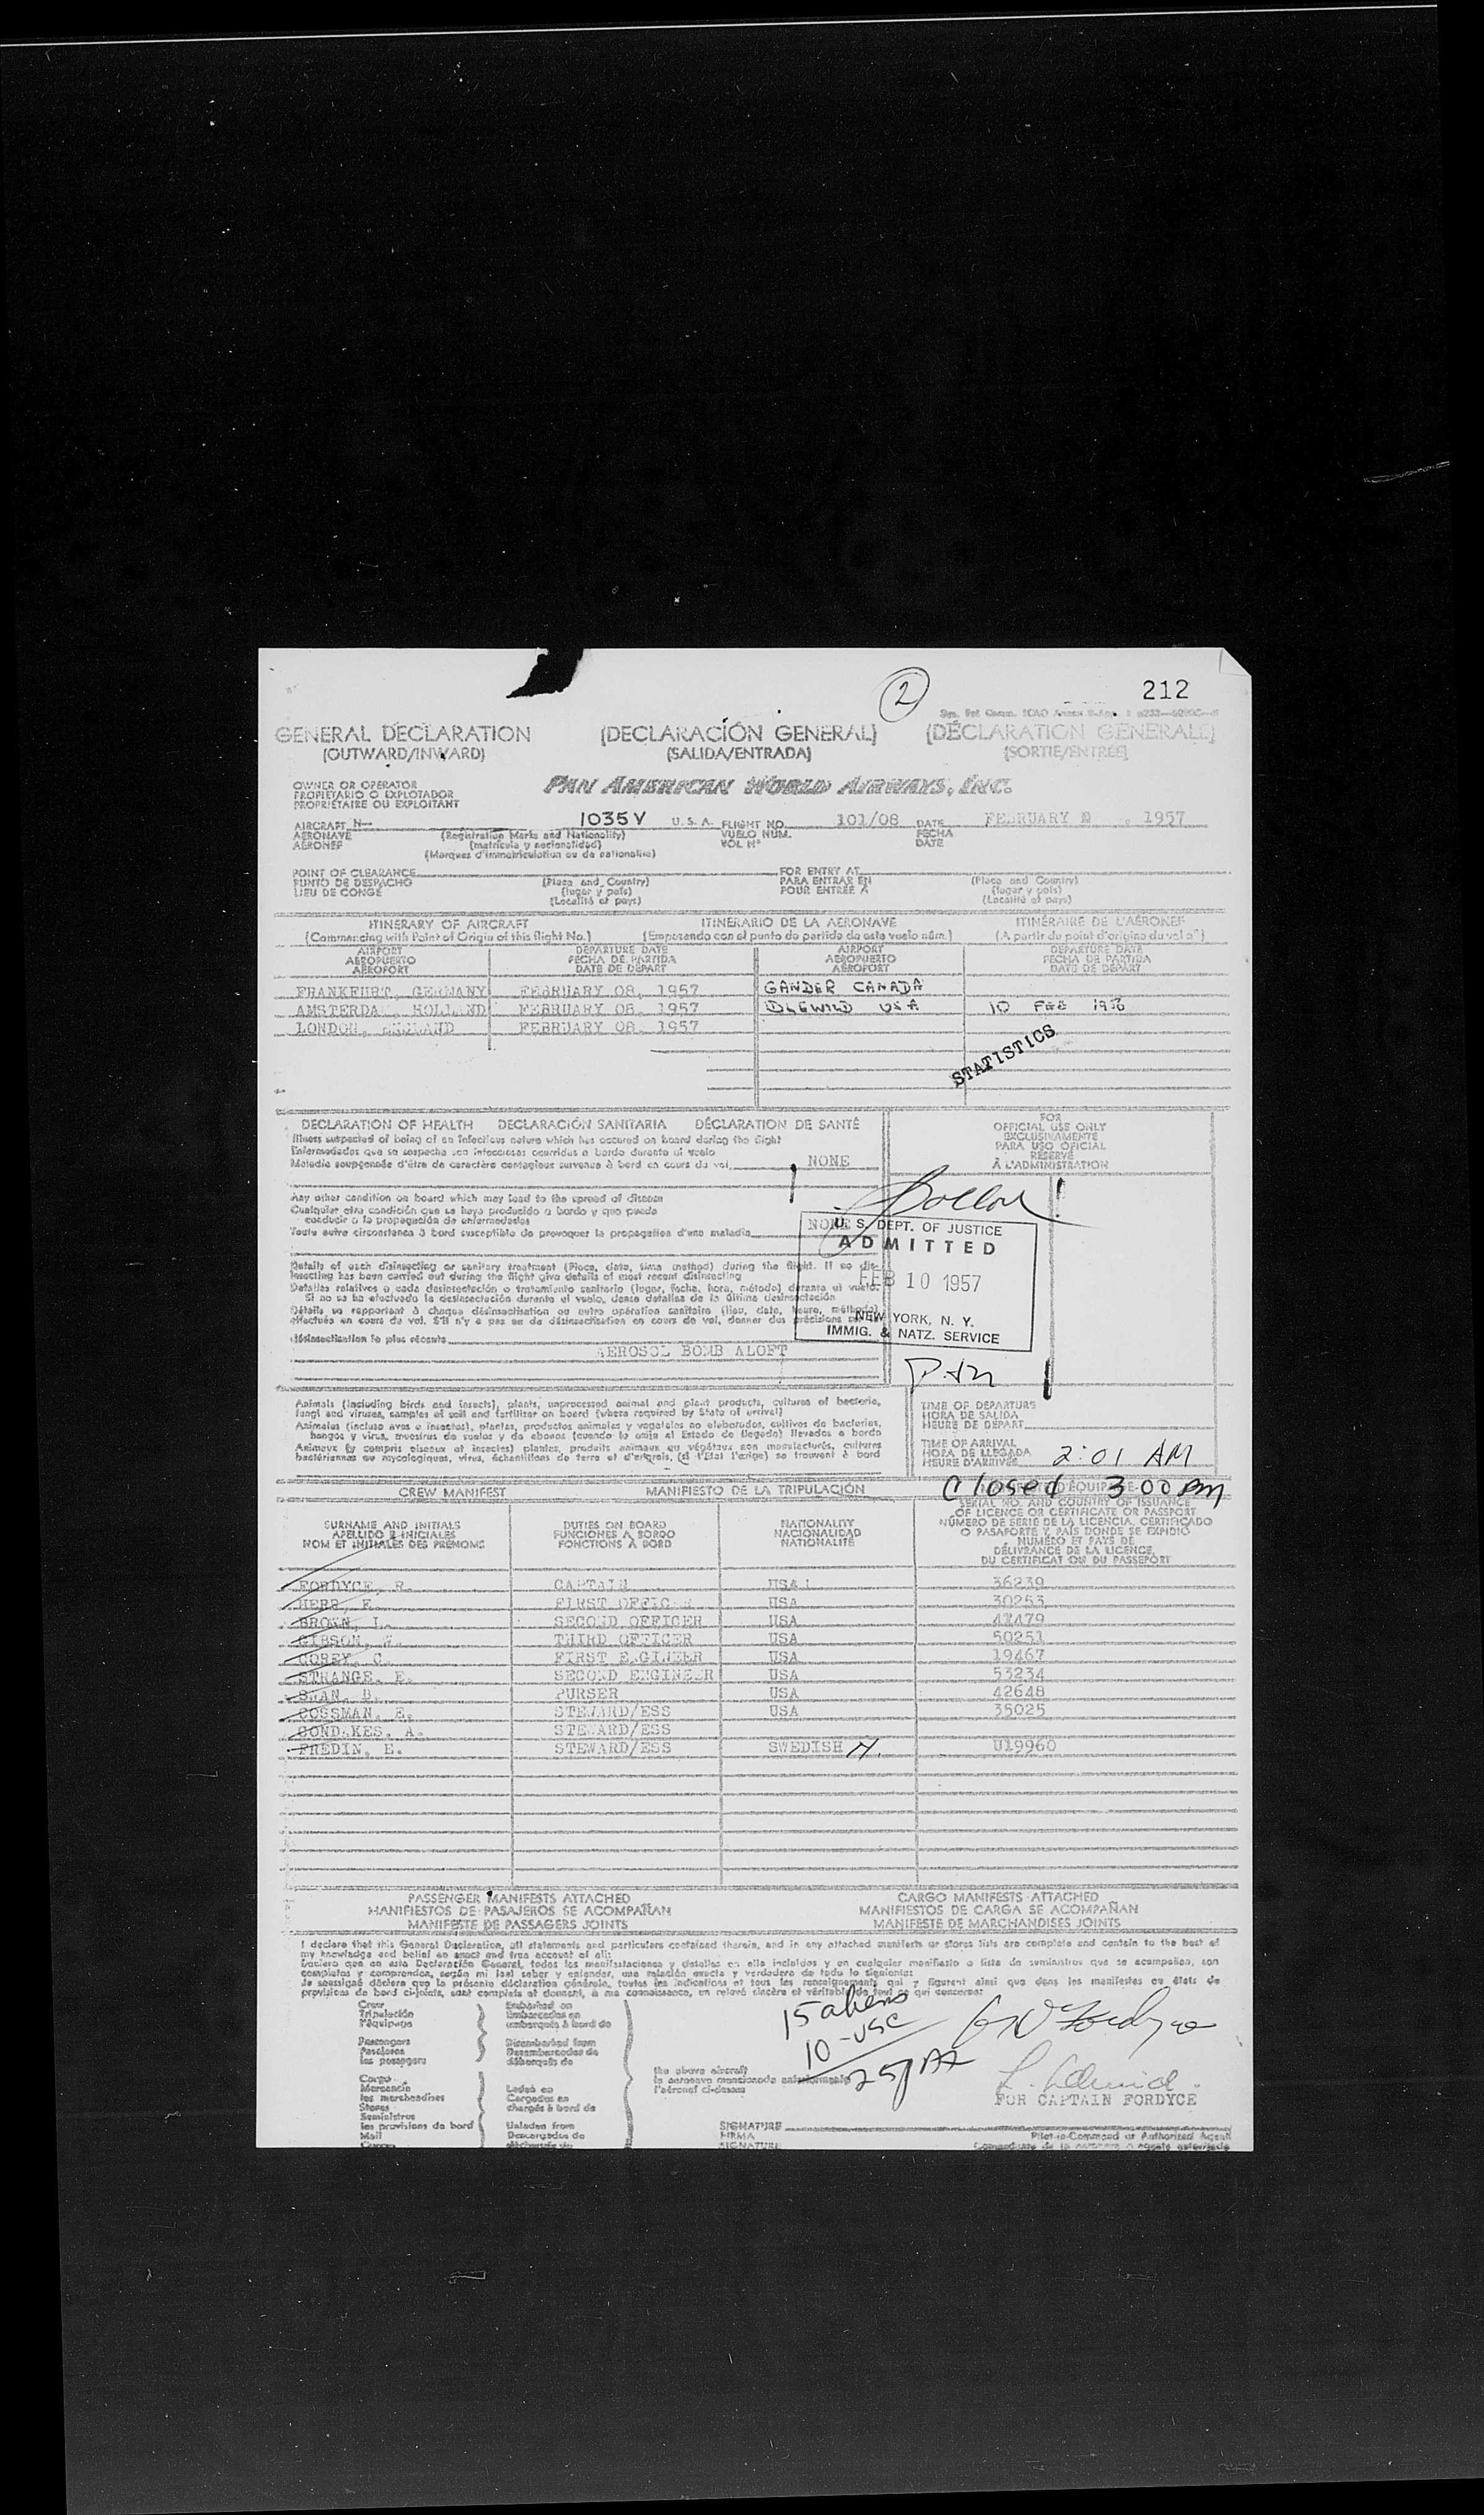 2
212
GENERAL DECLARATION (DECLARACIÓN GENERAL) (DÉCLARATION GENERALE)
(OUTWARD/INWARD) (SALIDA/ENTRADA) (SORTIE/ENTRÉE)
OWNER OR OPERATOR
PROPIETARIO O EXPLOTADOR
PROPRIÉTAIRE OU EXPLOITANT
PAN AMERICAN WORLD AIRWAYS, INC.
AIRCRAFT N— 1035V U.S.A. FLIGHT NO. 101/08 DATE FEBRUARY , 1957
AERONAVE (Registration Marks and Nationality) VUELO NÚM. FECHA
AÉRONEF (matrícula y nacionalidad) VOL Nº DATE
(Marques d'immatriculation ou de nationalité)
POINT OF CLEARANCE FOR ENTRY AT
PUNTO DE DESPACHO (Place and Country) PARA ENTRAR EN (Place and Country)
LIEU DE CONGÉ (lugar y país) POUR ENTRÉE À (lugar y país)
(Localité et pays) (Localité et pays)
ITINERARY OF AIRCRAFT ITINERARIO DE LA AERONAVE ITINÉRAIRE DE L'AÉRONEF
(Commencing with Point of Origin of this flight No.) (Empezando con el punto de partida de este vuelo núm.) (A partir du point d'origine du vol nº)
AIRPORT DEPARTURE DATE AIRPORT DEPARTURE DATE
AEROPUERTO FECHA DE PARTIDA AEROPUERTO FECHA DE PARTIDA
AÉROPORT DATE DE DÉPART AÉROPORT DATE DE DÉPART
FRANKFURT, GERMANY FEBRUARY 08, 1957 GANDER CANADA
AMSTERDA , HOLLAND FEBRUARY 08, 1957 IDLEWILD USA 10 FEB 1956
LONDON, ENGLAND FEBRUARY 08, 1957
STATISTICS
DECLARATION OF HEALTH DECLARACIÓN SANITARIA DÉCLARATION DE SANTÉ
Illness suspected of being of an infectious nature which has occured on board during the flight
Enfermedades que se sospecha son infecciosas ocurridas a bordo durante el vuelo
Maladie soupçonnée d'être de caractère contagieux survenue à bord en cours de vol NONE
FOR
OFFICIAL USE ONLY
EXCLUSIVAMENTE
PARA USO OFICIAL
RÉSERVÉ
À L'ADMINISTRATION
Any other condition on board which may lead to the spread of disease
Cualquier otra condición que se haya producido a bordo y que pueda
conducir a la propagación de enfermedades
Toute autre circonstance à bord susceptible de provoquer la propagation d'une maladie NONE
U. S. DEPT. OF JUSTICE
ADMITTED
FEB 10 1957
NEW YORK, N. Y.
IMMIG. & NATZ. SERVICE
Details of each disinsecting or sanitary treatment (Place, date, time method) during the flight. If no dis-
insecting has been carried out during the flight give details of most recent disinsecting
Detalles relativos a cada desinsectación o tratamiento sanitario (lugar, fecha, hora, método) durante el vuelo.
Si no se ha efectuado la desinsectación durante el vuelo, dense detalles de la última desinsectación
Détails se rapportant à chaque désinsectisation ou autre opération sanitaire (lieu, date, heure, méthode)
effectués en cours de vol. S'il n'y a pas eu de désinsectisation en cours de vol, donner des précisions
désinsectisation la plus récente
AEROSOL BOMB ALOFT
Animals (including birds and insects), plants, unprocessed animal and plant products, cultures of bacteria,
fungi and viruses, samples of soil and fertilizer on board (where required by State of arrival)
Animales (incluso aves e insectos), plantas, productos animales y vegetales no elaborados, cultivos de bacterias,
hongos y virus, muestras de suelos y de abonos (cuando lo exija el Estado de llegada) llevados a bordo
Animaux (y compris oiseaux et insectes) plantes, produits animaux ou végétaux non manufacturés, cultures
bactériennes ou mycologiques, virus, échantillons de terre et d'engrais, (si l'État l'exige) se trouvent à bord
TIME OF DEPARTURE
HORA DE SALIDA
HEURE DE DÉPART
TIME OF ARRIVAL
HORA DE LLEGADA
HEURE D'ARRIVÉE 2:01 AM
Closed 3 00 pm
CREW MANIFEST MANIFIESTO DE LA TRIPULACIÓN D'ÉQUIPAGE
SURNAME AND INITIALS DUTIES ON BOARD NATIONALITY SERIAL NO. AND COUNTRY OF ISSUANCE
APELLIDO E INICIALES FUNCIONES A BORDO NACIONALIDAD OF LICENCE OR CERTIFICATE OR PASSPORT
NOM ET INITIALES DES PRÉNOMS FONCTIONS À BORD NATIONALITÉ NÚMERO DE SERIE DE LA LICENCIA, CERTIFICADO
O PASAPORTE Y PAÍS DONDE SE EXPIDIÓ
NUMÉRO ET PAYS DE
DÉLIVRANCE DE LA LICENCE,
DU CERTIFICAT OU DU PASSEPORT
FORDYCE, R. CAPTAIN USA 36239
HERR, E. FIRST OFFICER USA 30253
BROWN, L. SECOND OFFICER USA 47479
GIBSON, W. THIRD OFFICER USA 50251
COREY, C. FIRST ENGINEER USA 19467
STRANGE, E. SECOND ENGINEER USA 53234
PURSER USA 42648
COSSMAN, E. STEWARD/ESS USA 35025
GONDAKES, A. STEWARD/ESS
FREDIN, E. STEWARD/ESS SWEDISH U19960
PASSENGER MANIFESTS ATTACHED CARGO MANIFESTS ATTACHED
MANIFIESTOS DE PASAJEROS SE ACOMPAÑAN MANIFIESTOS DE CARGA SE ACOMPAÑAN
MANIFESTE DE PASSAGERS JOINTS MANIFESTE DE MARCHANDISES JOINTS
I declare that this General Declaration, all statements and particulars contained therein, and in any attached manifests or stores lists are complete and contain to the best of
my knowledge and belief an exact and true account of all:
Declaro que en esta Declaración General, todas las manifestaciones y detalles en ella incluidos y en cualquier manifiesto o lista de suministros que se acompañan, son
completas y comprenden, según mi leal saber y entender, una relación exacta y verdadera de todo lo siguiente:
Je soussigné déclare que la présente déclaration générale, toutes les indications et tous les renseignements qui y figurent ainsi que dans les manifestes ou états de
provisions de bord ci-joints, sont complets et donnent, à ma connaissance, un relevé sincère et véritable de tout ce qui concerne:
Crew Embarked on
Tripulación Embarcados en
l'équipage embarqués à bord de
Passengers Disembarked from
Pasajeros Desembarcados de
les passagers débarqués de
15 aliens
10 - USC
25
the above aircraft
la aeronave mencionada anteriormente
l'aéronef ci-dessus
Cargo
Mercancía Laded on
les marchandises Cargados en
Stores chargés à bord de
Suministros
les provisions de bord Unladen from
Mail Descargados de
FOR CAPTAIN FORDYCE
SIGNATURE
FIRMA
SIGNATURE
Pilot-in-Command or Authorized Agent